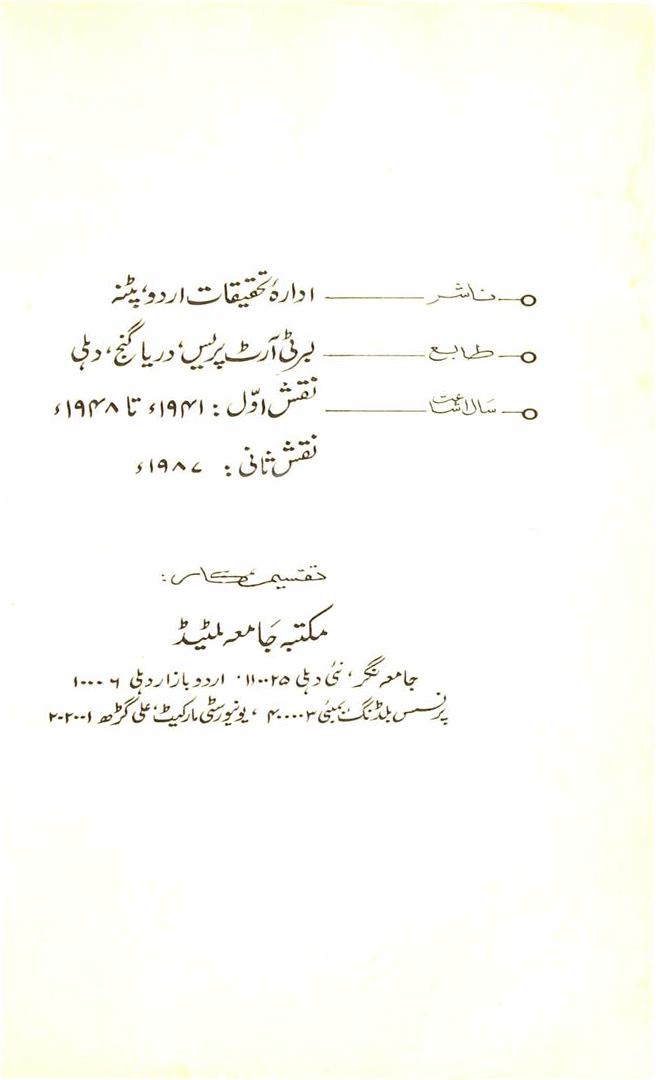 ناشر ——— ادارۂ تحقیقات اردو، پٹنہ
طابع ——— لبرٹی آرٹ پریس، دریا گنج، دہلی
سال اشاعت ——— نقش اوّل : ۱۹۴۱ء تا ۱۹۴۸ء
نقش ثانی : ۱۹۸۷ء
تقسیم کار :
مکتبہ جامعہ لمٹیڈ
جامعہ نگر، نئی دہلی ۱۱۰۰۲۵ اردو بازار دہلی ۱۰۰۰۶
پرنسس بلڈنگ، بمبئی ۴۰۰۰۰۳، یونیورسٹی مارکیٹ، علی گڑھ ۲۰۲۰۰۱